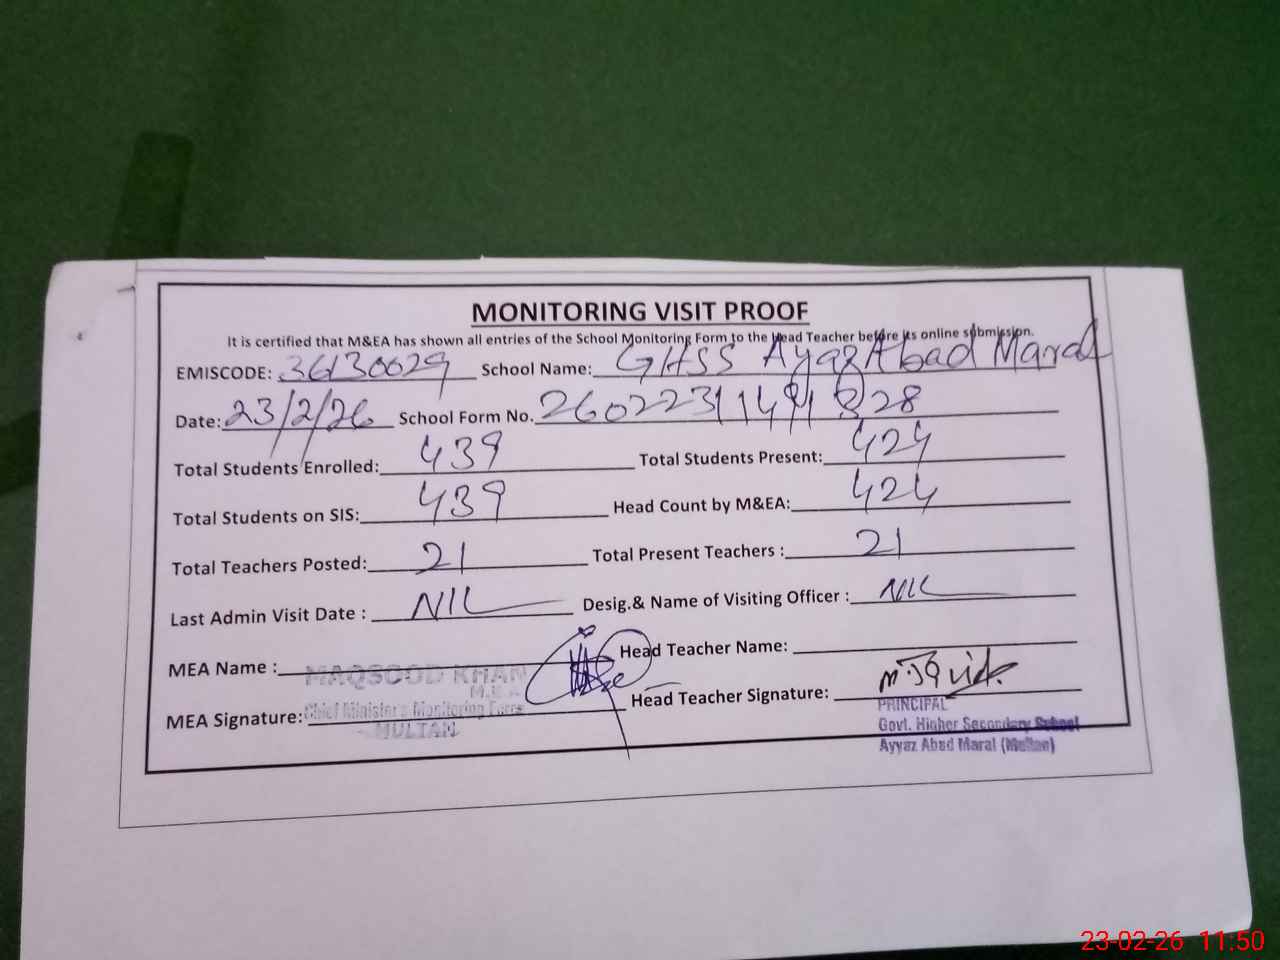 MONITORING VISIT PROOF
It is certified that M&EA has shown all entries of the School Monitoring Form to the Head Teacher before its online submission.
EMISCODE: 36130029 School Name: GHSS Ayaz Abad Maral
Date: 23/2/26 School Form No. 26022311491828
Total Students Enrolled: 439 Total Students Present: 424
Total Students on SIS: 439 Head Count by M&EA: 424
Total Teachers Posted: 21 Total Present Teachers : 21
Last Admin Visit Date : NIL Desig.& Name of Visiting Officer : NIL
MEA Name : Head Teacher Name:
MAQSOOD KHAN
M.E.A
MEA Signature: Head Teacher Signature:
Chief Minister's Monitoring Force
MULTAN
PRINCIPAL
Govt. Higher Secondary School
Ayyaz Abad Maral (Multan)
23-02-26 11:50